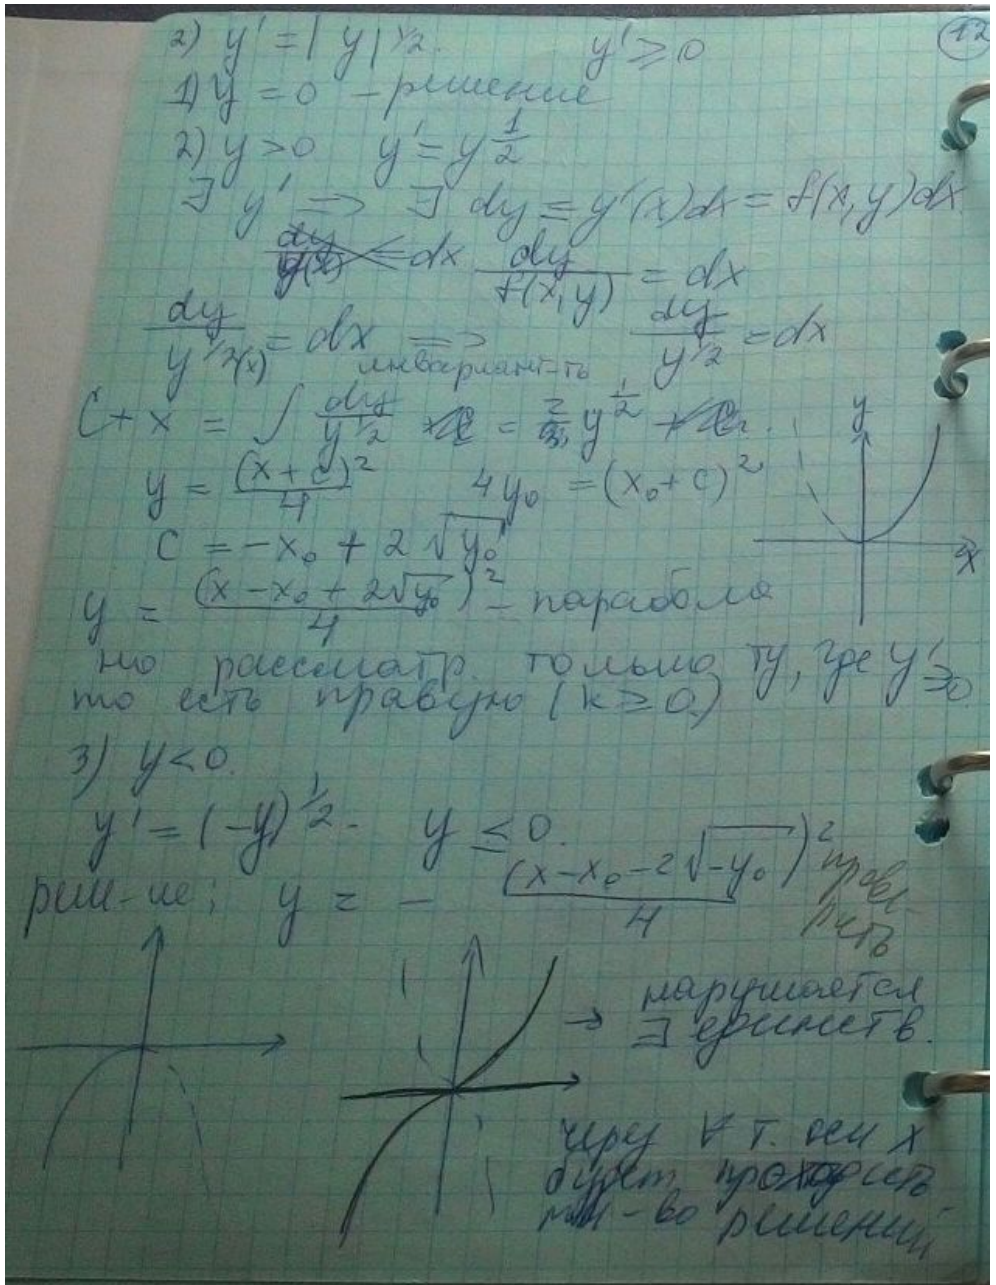 12
2) y' = |y|^{1/2}. y' ≥ 0
1) y = 0 – решение
2) y > 0 y' = y^{1/2}
∃ y' => ∃ dy = y'(x)dx = f(x, y)dx
dx dy/f(x, y) = dx
dy/y^{1/2}(x) = dx => dy/y^{1/2} = dx
инвариант-ть
C + x = ∫ dy/y^{1/2} = 2y^{1/2}
y = (x + c)^2/4 4y₀ = (x₀ + c)^2
C = -x₀ + 2√y₀
y = (x - x₀ + 2√y₀)^2/4 – парабола
но рассматр. только ту, где y' ≥ 0
то есть правую (k ≥ 0)
y
x
3) y < 0.
y' = (-y)^{1/2}. y ≤ 0.
реш-ие: y = - (x - x₀ - 2√-y₀)^2/4
→ нарушается
∃ единств.
через ∀ т. оси x
будет проходить
мн-во решений